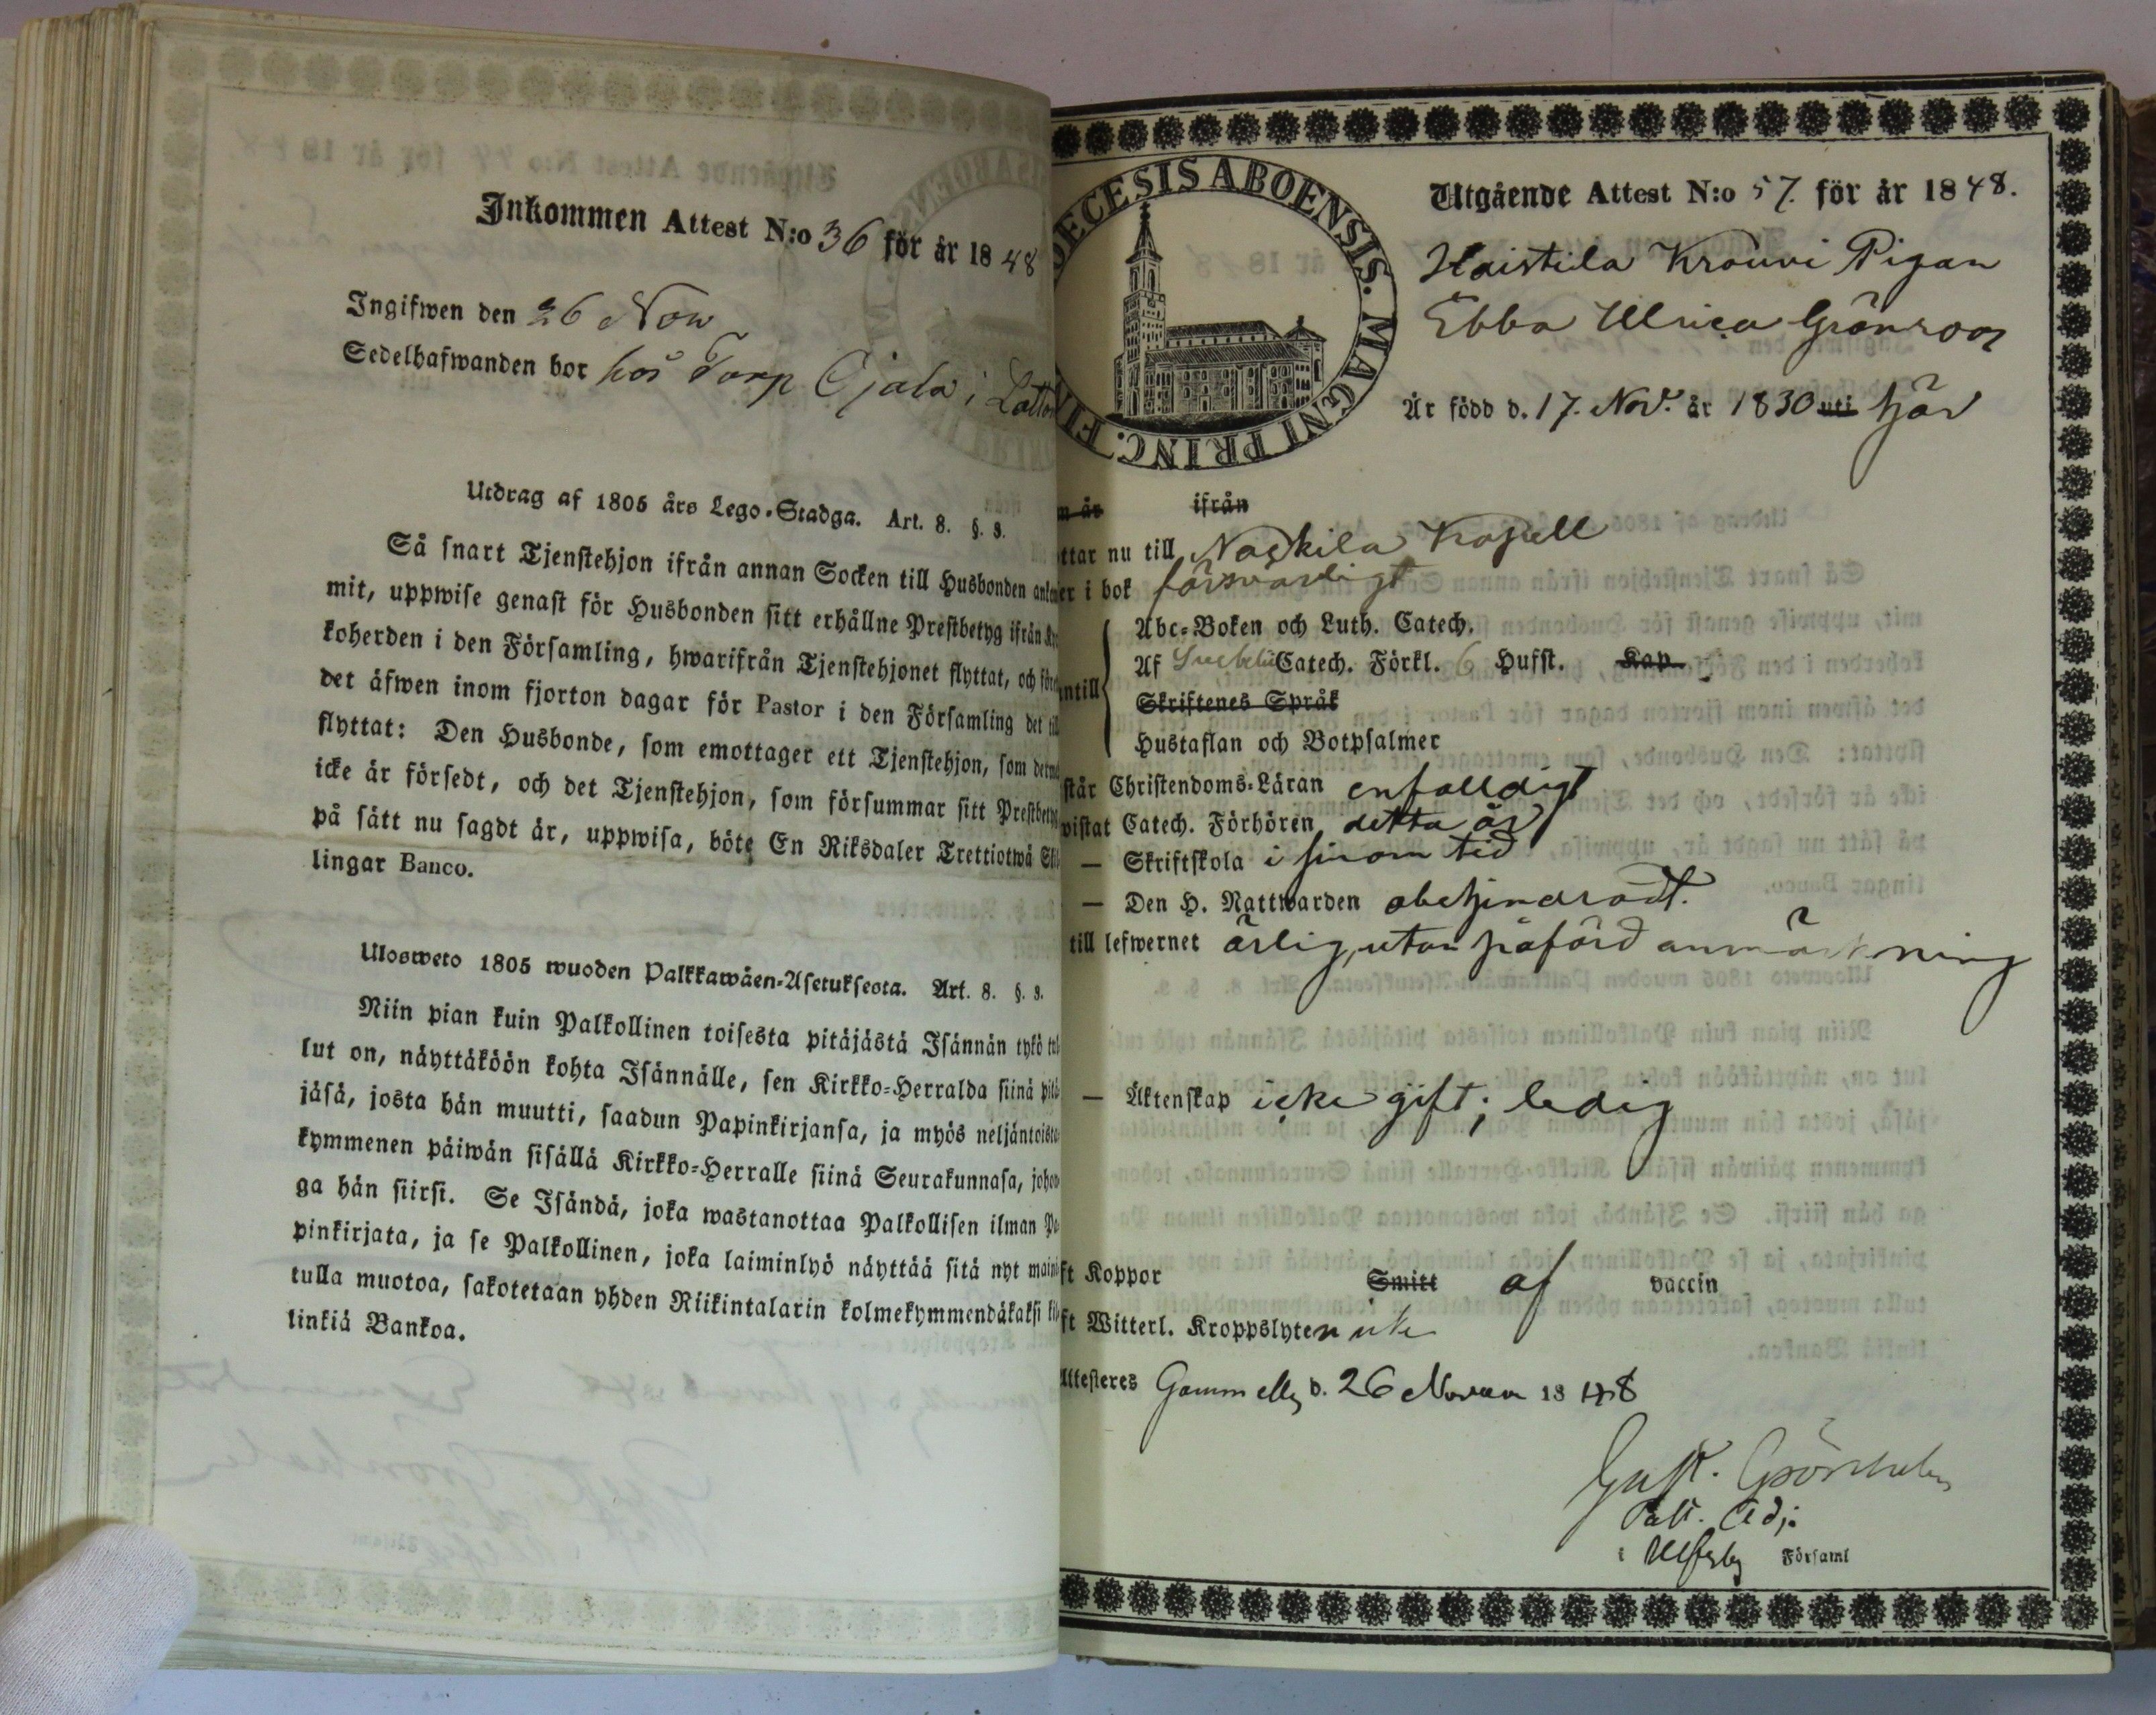 Inkommen Attest N:o 36 för år 1848
Ingifwen den 26 Nov
Sedelhafwanden bor hos Torp Ojala i
Utdrag af 1805 års Lego-Stadga. Art. 8. §. 3.
Så snart Tjenstehjon ifrån annan Socken till Husbonden
mit, uppwise genast för Husbonden sitt erhållne Prestbetyg ifrån
koherden i den Församling, hwarifrån Tjenstehjonet flyttat, och
det äfwen inom fjorton dagar för Pastor i den Församling det
flyttat: Den Husbonde, som emottager ett Tjenstehjon, som
icke är försedt, och det Tjenstehjon, som försummar sitt Prestbetyg
på sätt nu sagdt är, uppwisa, böte En Riksdaler Trettiotwå
lingar Banco.
Ulosweto 1805 wuoden Palkkawäen-Asetuksesta. Art. 8. §. 3.
Niin pian kuin Palkollinen toisesta pitäjästä Isännän tykö
lut on, näyttäköön kohta Isännälle, sen Kirkko-Herralda siinä
jäsä, josta hän muutti, saadun Papinkirjansa, ja myös neljäntoista-
kymmenen päiwän sisällä Kirkko-Herralle siinä Seurakunnasa,
ga hän siirsi. Se Isändä, joka wastanottaa Palkollisen ilman
pinkirjata, ja se Palkollinen, joka laiminlyö näyttää sitä nyt
tulla muotoa, sakotetaan yhden Riikintalarin kolmekymmendäkaksi
linkiä Bankoa.
ECESIS ABOENSIS. MAGNI PRINC. FIN
Utgående Attest N:o 57. för år 1848.
Haistila Krouvi Pigan
Ebba Ulrica Grönroos
Är född d. 17. Nov. år 1830 uti här
ifrån
ttar nu till Kapell
er i bok försvarligt
Abc-Boken och Luth. Catech.
Af Catech. Förkl. 6 Husst. Kap.
Skriftenes Språk
ntill
Hustaflan och Botpsalmer
står Christendoms-Läran enfalldigt
vistat Catech. Förhören detta år
— Skriftskola i sinom tid
— Den H. Nattwarden obehindradt.
till lefwernet ärlig, utan påförd anmärkning
— Äktenskap icke gift; ledig
ft Koppor Smitt af vaccin
ft Witterl. Kroppslyten
Attesteres d. 26 1848
Gust. Grönholm
Past. Adj.
i Ulfsby Församl